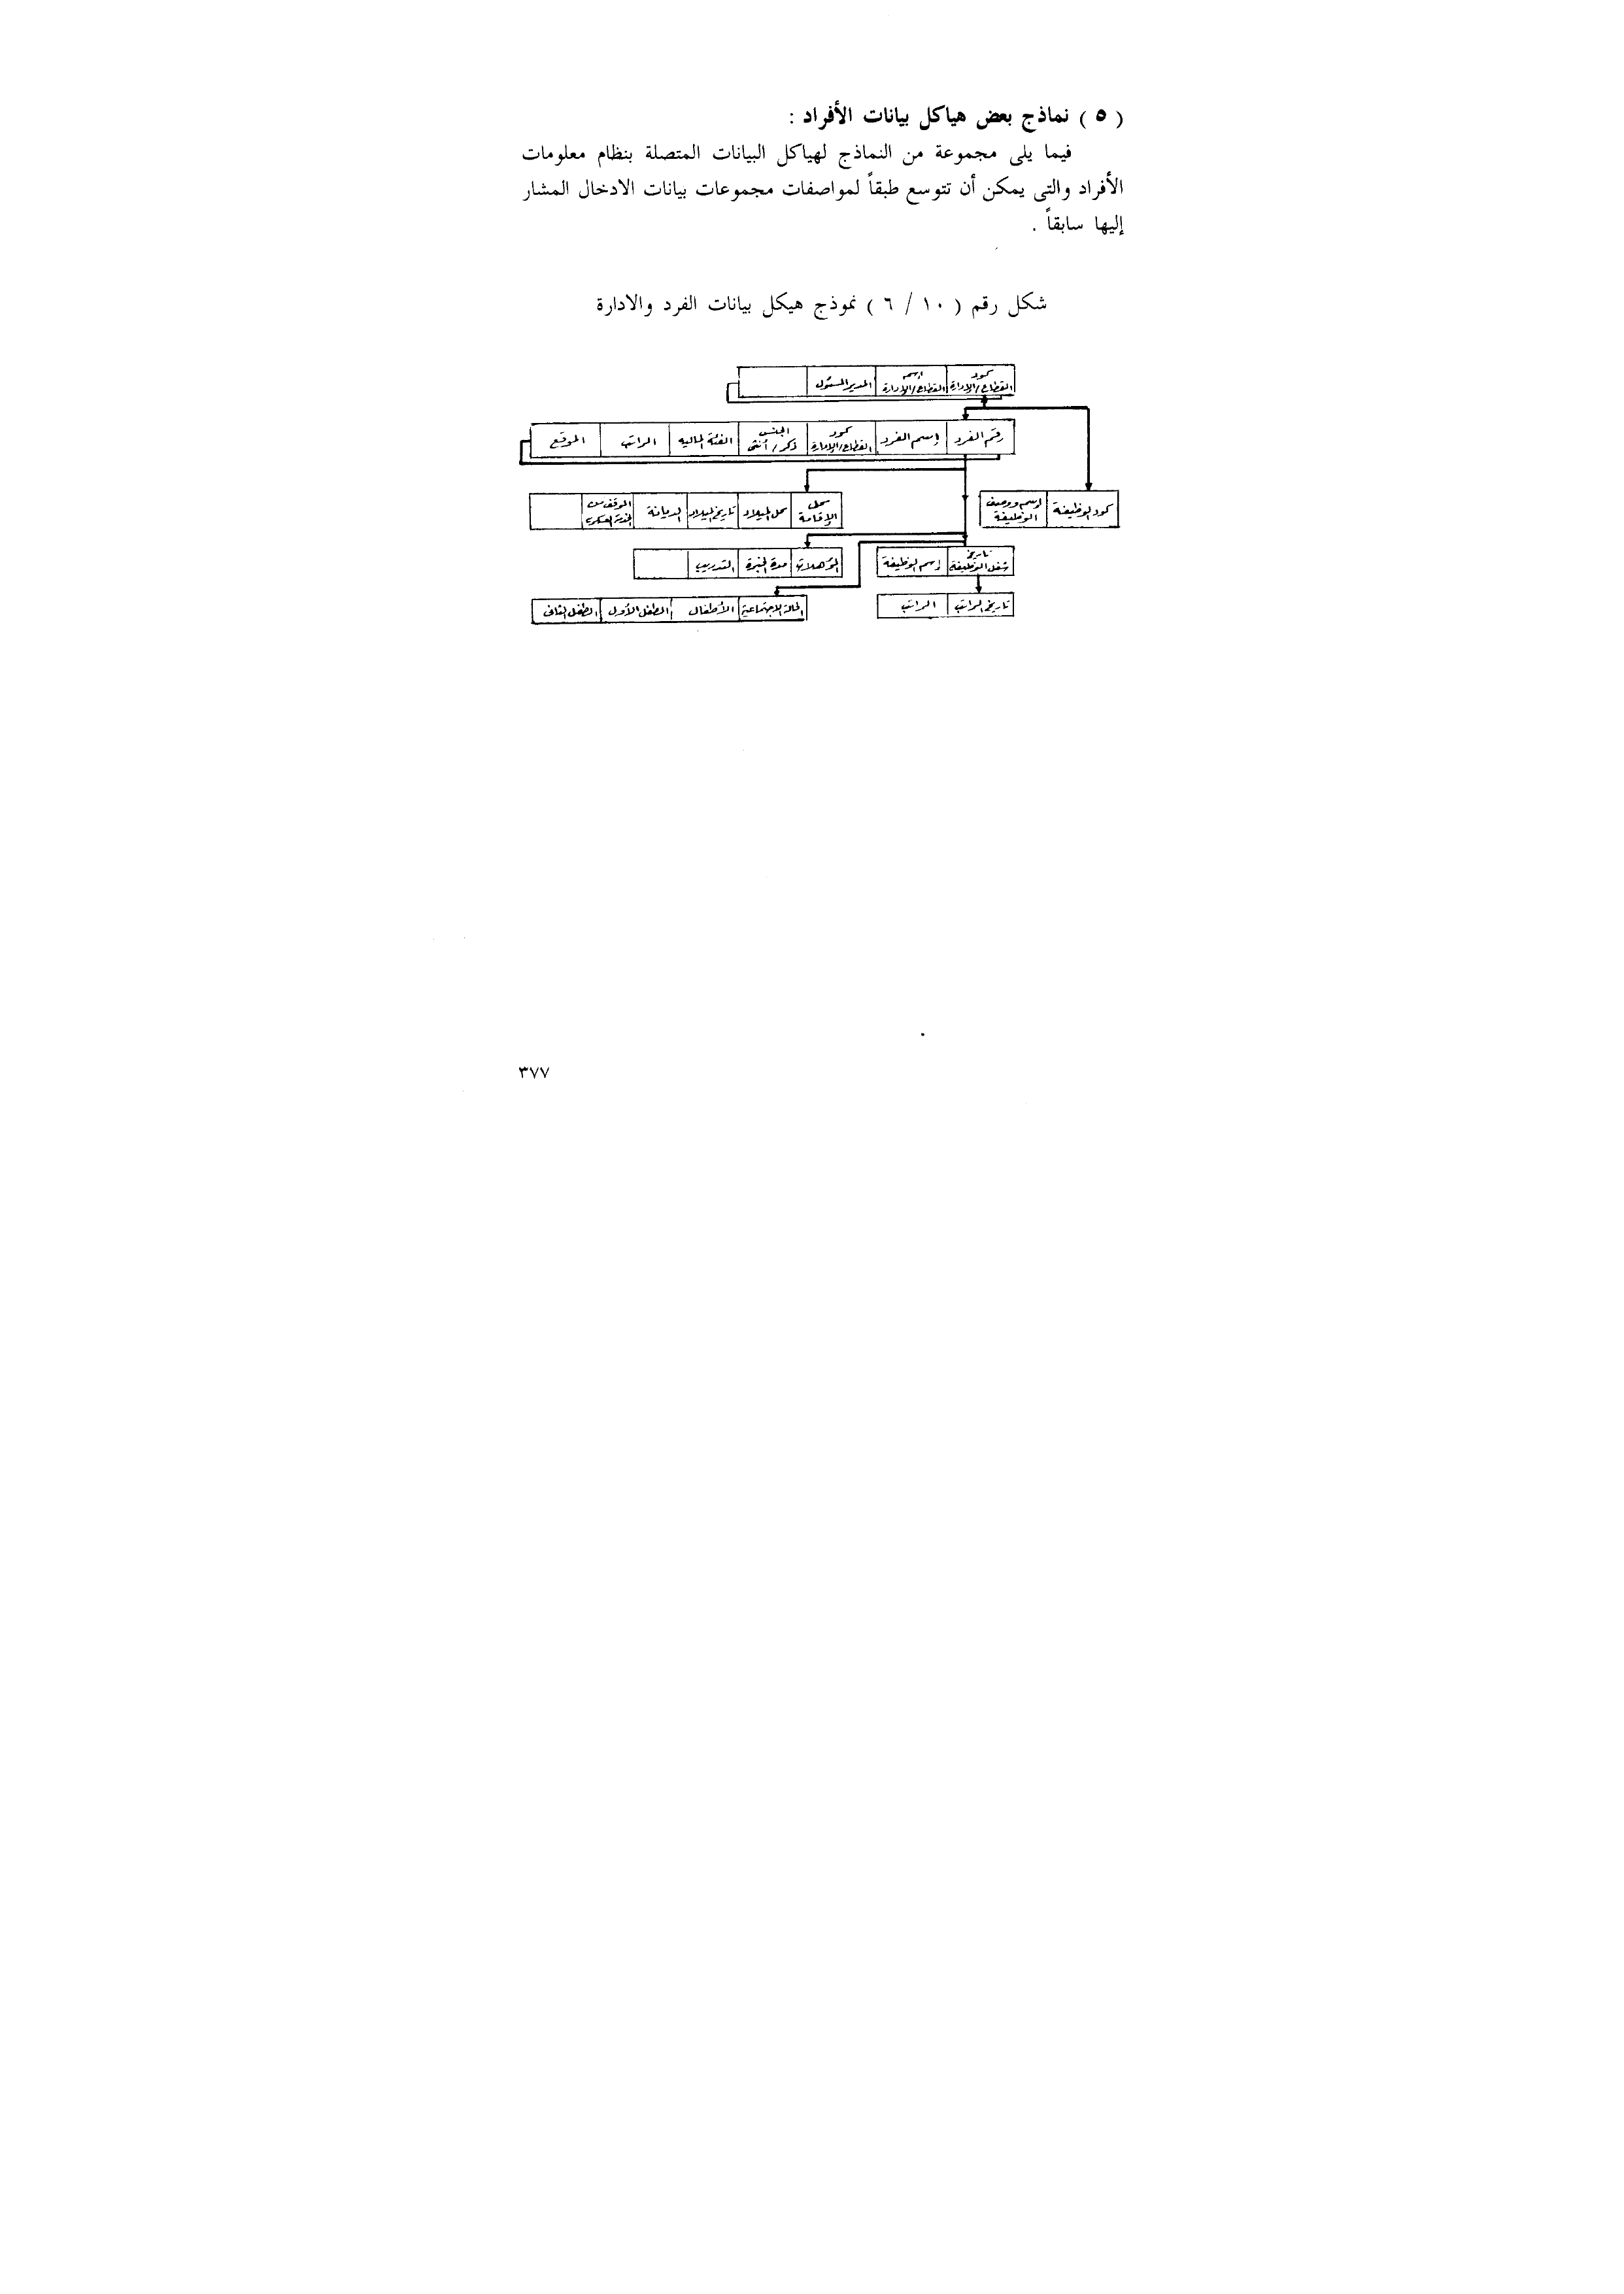 ( ٥ ) نماذج بعض هياكل بيانات الأفراد :
فيما يلى مجموعة من النماذج لهياكل البيانات المتصلة بنظام معلومات
الأفراد والتى يمكن أن تتوسع طبقاً لمواصفات مجموعات بيانات الادخال المشار
إليها سابقاً .
شكل رقم ( ١٠ / ٦ ) نموذج هيكل بيانات الفرد والادارة
كود القطاع/الإدارة
إسم القطاع/الإدارة
المدير المسئول
رقم الفرد
إسم الفرد
كود القطاع/الإدارة
الجنس ذكر/أنثى
الفئة المالية
الراتب
الموقع
كود الوظيفة
إسم ووصف الوظيفة
محل الإقامة
محل الميلاد
تاريخ الميلاد
الديانة
الموقف من الخدمة العسكرية
تاريخ شغل الوظيفة
إسم الوظيفة
المؤهلات
مدة الخبرة
التدريب
تاريخ الراتب
الراتب
الحالة الإجتماعية
الأطفال
الطفل الأول
الطفل الثانى
٣٧٧